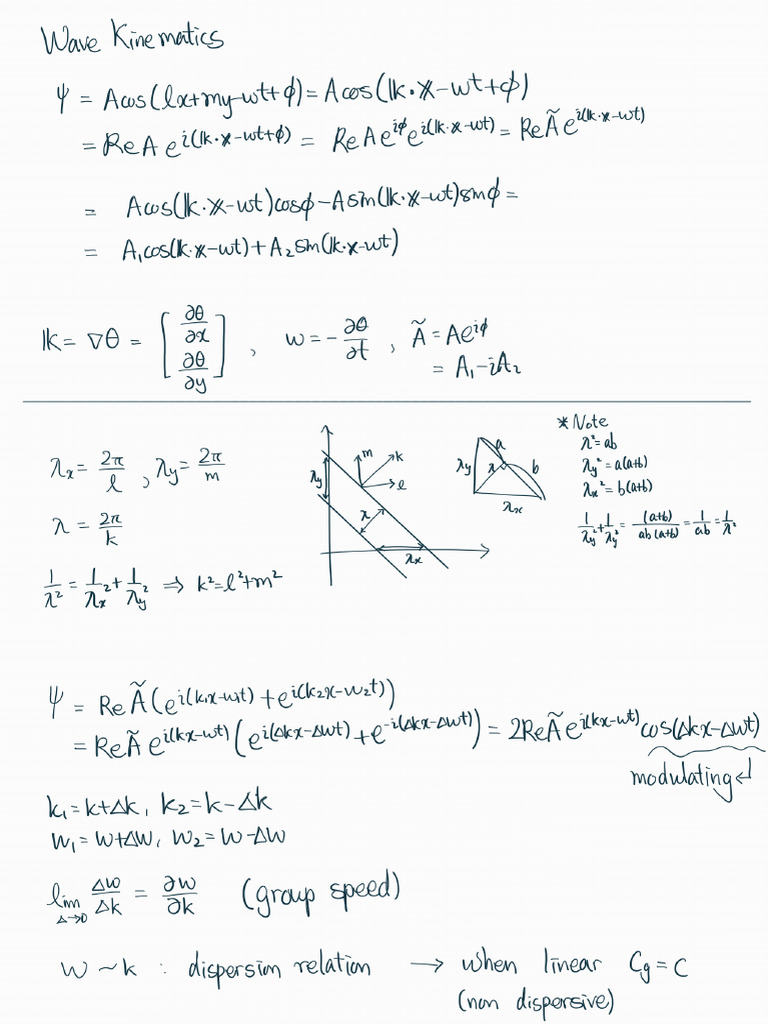 Wave Kinematics
ψ = Acos(lx+my-wt+ϕ) = Acos(𝕜·𝕩-wt+ϕ)
= Re A e^{i(𝕜·𝕩-wt+ϕ)} = Re A e^{iϕ} e^{i(𝕜·𝕩-wt)} = Re Ã e^{i(𝕜·𝕩-wt)}
= Acos(𝕜·𝕩-wt)cosϕ - Asin(𝕜·𝕩-wt)sinϕ =
= A₁cos(𝕜·𝕩-wt) + A₂sin(𝕜·𝕩-wt)
𝕜 = ∇θ = [∂θ/∂x ∂θ/∂y] , w = -∂θ/∂t , Ã = Ae^{iϕ}
= A₁-iA₂
λx = 2π/l , λy = 2π/m
λ = 2π/k
1/λ² = 1/λx² + 1/λy² ⇒ k²=l²+m²
λy
m
k
l
λ
λx
λy
a
λ
b
λx
* Note
λ²=ab
λy²=a(a+b)
λx²=b(a+b)
1/λy² + 1/λy² = (a+b)/ab(a+b) = 1/ab = 1/λ²
ψ = Re Ã(e^{i(k₁x-w₁t)} + e^{i(k₂x-w₂t)})
= Re Ã e^{i(kx-wt)}(e^{i(Δkx-Δwt)} + e^{-i(Δkx-Δwt)}) = 2Re Ã e^{i(kx-wt)} cos(Δkx-Δwt)
modulating ↲
k₁=k+Δk, k₂=k-Δk
w₁=w+Δw, w₂=w-Δw
lim Δ→0 Δw/Δk = ∂w/∂k (group speed)
w ~ k : dispersion relation → when linear Cg = C
(non dispersive)